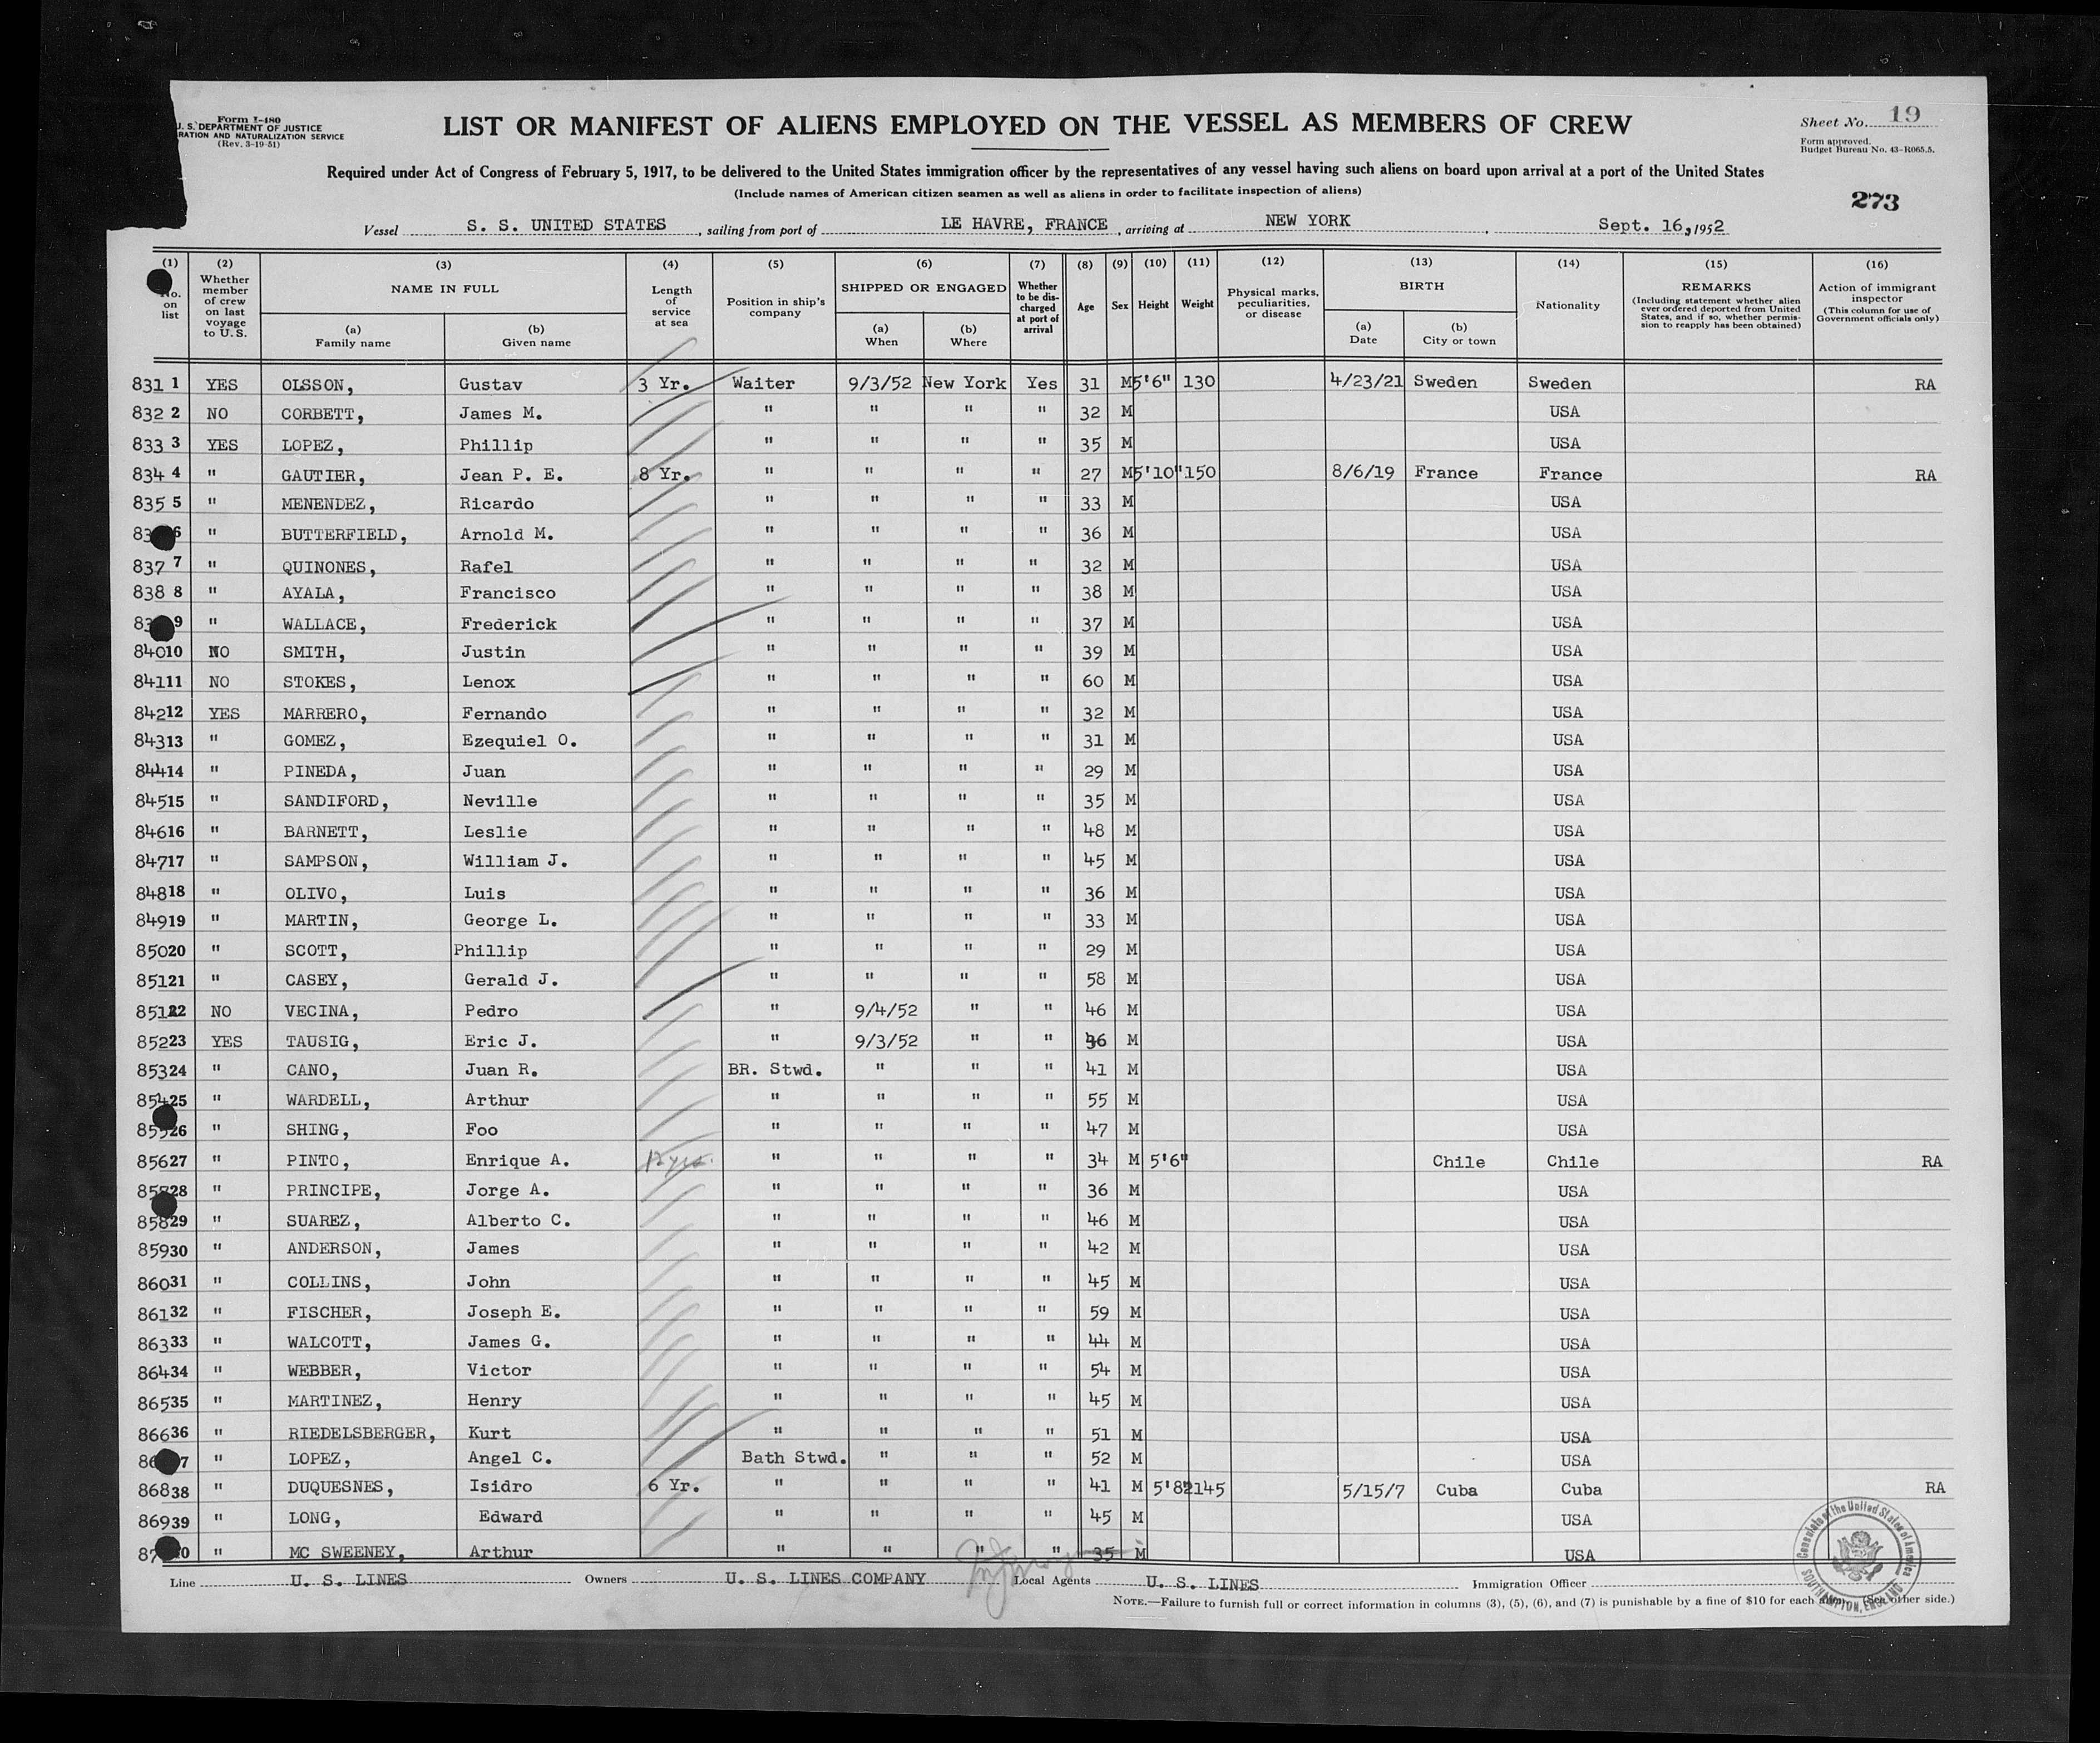 Form I-480
U. S. DEPARTMENT OF JUSTICE
RATION AND NATURALIZATION SERVICE
(Rev. 3-19-51)
LIST OR MANIFEST OF ALIENS EMPLOYED ON THE VESSEL AS MEMBERS OF CREW
Sheet No. 19
Form approved.
Budget Bureau No. 43-R065.5.
Required under Act of Congress of February 5, 1917, to be delivered to the United States immigration officer by the representatives of any vessel having such aliens on board upon arrival at a port of the United States
(Include names of American citizen seamen as well as aliens in order to facilitate inspection of aliens)
273
Vessel S. S. UNITED STATES, sailing from port of LE HAVRE, FRANCE, arriving at NEW YORK, Sept. 16, 1952
(1) (2) (3) (4) (5) (6) (7) (8) (9) (10) (11) (12) (13) (14) (15) (16)
No. on list
Whether member of crew on last voyage to U. S.
NAME IN FULL
(a) Family name
(b) Given name
Length of service at sea
Position in ship's company
SHIPPED OR ENGAGED
(a) When
(b) Where
Whether to be discharged at port of arrival
Age
Sex
Height
Weight
Physical marks, peculiarities, or disease
BIRTH
(a) Date
(b) City or town
Nationality
REMARKS
(Including statement whether alien ever ordered deported from United States, and if so, whether permission to reapply has been obtained)
Action of immigrant inspector
(This column for use of Government officials only)
831 1 YES OLSSON, Gustav 3 Yr. Waiter 9/3/52 New York Yes 31 M 5'6" 130 4/23/21 Sweden Sweden RA
832 2 NO CORBETT, James M. " " " " 32 M USA
833 3 YES LOPEZ, Phillip " " " " 35 M USA
834 4 " GAUTIER, Jean P. E. 8 Yr. " " " " 27 M 5'10" 150 8/6/19 France France RA
835 5 " MENENDEZ, Ricardo " " " " 33 M USA
83 6 " BUTTERFIELD, Arnold M. " " " " 36 M USA
837 7 " QUINONES, Rafel " " " " 32 M USA
838 8 " AYALA, Francisco " " " " 38 M USA
83 9 " WALLACE, Frederick " " " " 37 M USA
840 10 NO SMITH, Justin " " " " 39 M USA
841 11 NO STOKES, Lenox " " " " 60 M USA
842 12 YES MARRERO, Fernando " " " " 32 M USA
843 13 " GOMEZ, Ezequiel O. " " " " 31 M USA
844 14 " PINEDA, Juan " " " " 29 M USA
845 15 " SANDIFORD, Neville " " " " 35 M USA
846 16 " BARNETT, Leslie " " " " 48 M USA
847 17 " SAMPSON, William J. " " " " 45 M USA
848 18 " OLIVO, Luis " " " " 36 M USA
849 19 " MARTIN, George L. " " " " 33 M USA
850 20 " SCOTT, Phillip " " " " 29 M USA
851 21 " CASEY, Gerald J. " " " " 58 M USA
851 22 NO VECINA, Pedro " 9/4/52 " " 46 M USA
852 23 YES TAUSIG, Eric J. " 9/3/52 " " M USA
853 24 " CANO, Juan R. BR. Stwd. " " " 41 M USA
854 25 " WARDELL, Arthur " " " " 55 M USA
855 26 " SHING, Foo " " " " 47 M USA
856 27 " PINTO, Enrique A. 12 yrs. " " " " 34 M 5'6" Chile Chile RA
857 28 " PRINCIPE, Jorge A. " " " " 36 M USA
858 29 " SUAREZ, Alberto C. " " " " 46 M USA
859 30 " ANDERSON, James " " " " 42 M USA
860 31 " COLLINS, John " " " " 45 M USA
861 32 " FISCHER, Joseph E. " " " " 59 M USA
863 33 " WALCOTT, James G. " " " " 44 M USA
864 34 " WEBBER, Victor " " " " 54 M USA
865 35 " MARTINEZ, Henry " " " " 45 M USA
866 36 " RIEDELSBERGER, Kurt " " " " 51 M USA
86 7 " LOPEZ, Angel C. Bath Stwd. " " " 52 M USA
868 38 " DUQUESNES, Isidro 6 Yr. " " " " 41 M 5'8" 145 5/15/7 Cuba Cuba RA
869 39 " LONG, Edward " " " " 45 M USA
87 0 " MC SWEENEY, Arthur " " " " 35 M USA
Line U. S. LINES Owners U. S. LINES COMPANY Local Agents U. S. LINES Immigration Officer
NOTE.—Failure to furnish full or correct information in columns (3), (5), (6), and (7) is punishable by a fine of $10 for each alien. (See other side.)
Consulate of the United States of America
SOUTHAMPTON, ENGLAND